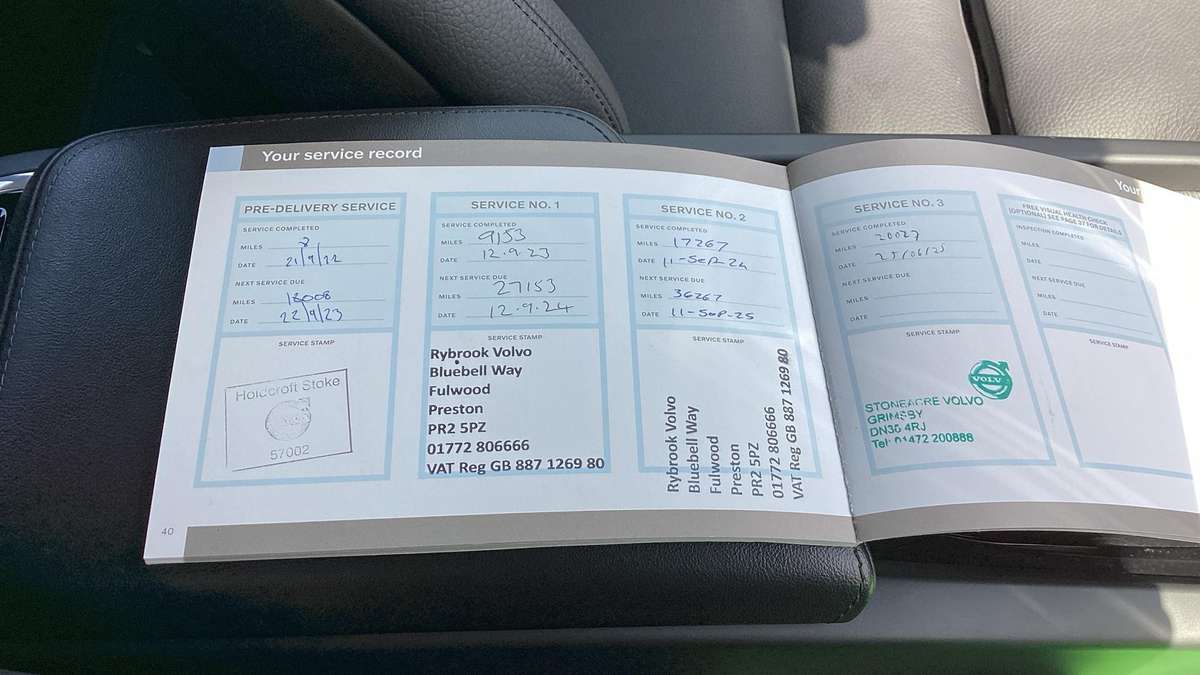 Your service record
PRE-DELIVERY SERVICE
SERVICE COMPLETED
MILES 8
DATE 21/9/22
NEXT SERVICE DUE
MILES 18008
DATE 22/9/23
SERVICE STAMP
Holdcroft Stoke
57002
SERVICE NO. 1
SERVICE COMPLETED
MILES 9153
DATE 12.9.23
NEXT SERVICE DUE
MILES 27153
DATE 12.9.24
SERVICE STAMP
Rybrook Volvo
Bluebell Way
Fulwood
Preston
PR2 5PZ
01772 806666
VAT Reg GB 887 1269 80
SERVICE NO. 2
SERVICE COMPLETED
MILES 17267
DATE 11-SEP-24
NEXT SERVICE DUE
MILES 36267
DATE 11-SEP-25
SERVICE STAMP
Rybrook Volvo
Bluebell Way
Fulwood
Preston
PR2 5PZ
01772 806666
VAT Reg GB 887 1269 80
40
Your
SERVICE NO. 3
SERVICE COMPLETED
MILES 20027
DATE 25/06/25
NEXT SERVICE DUE
MILES
DATE
SERVICE STAMP
VOLVO
STONEACRE VOLVO
GRIMSBY
DN36 4RJ
Tel: 01472 200888
FREE VISUAL HEALTH CHECK
(OPTIONAL) SEE PAGE 37 FOR DETAILS
INSPECTION COMPLETED
MILES
DATE
NEXT SERVICE DUE
MILES
DATE
SERVICE STAMP